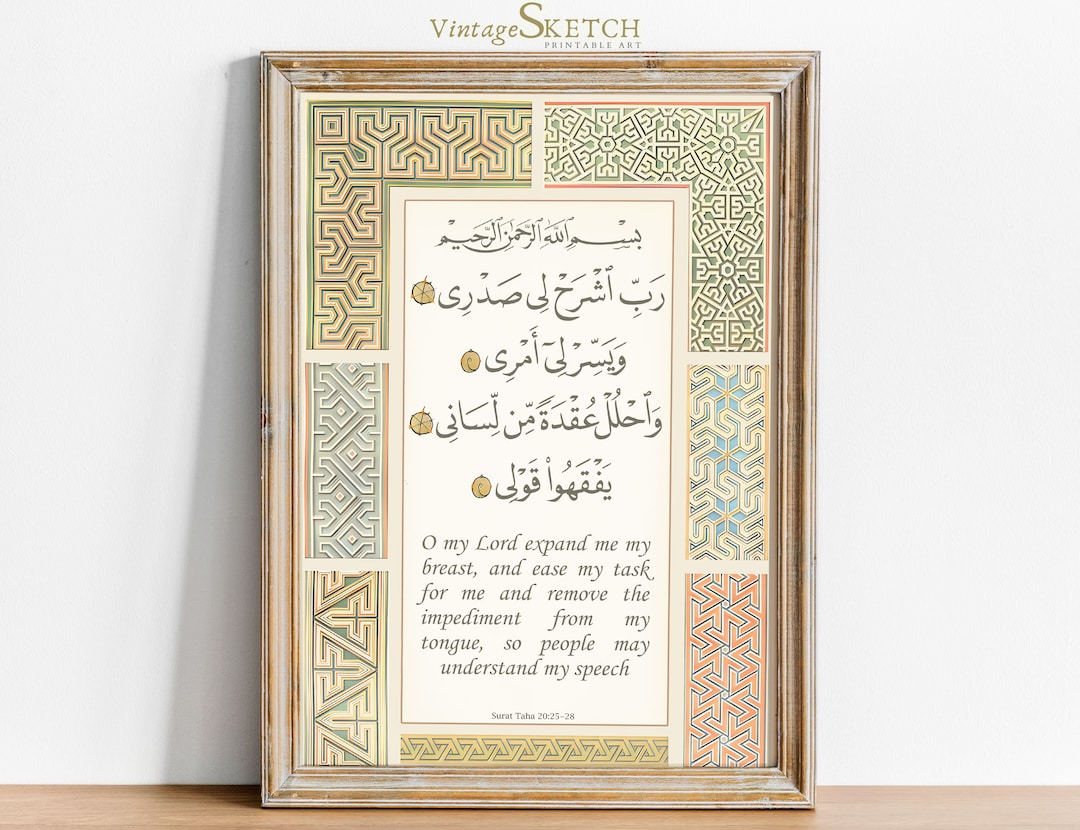 VintageSKETCH
PRINTABLE ART
بِسْمِ ٱللَّهِ ٱلرَّحْمَٰنِ ٱلرَّحِيمِ
رَبِّ ٱشْرَحْ لِى صَدْرِى
وَيَسِّرْ لِىٓ أَمْرِى
وَٱحْلُلْ عُقْدَةً مِّن لِّسَانِى
يَفْقَهُوا۟ قَوْلِى
O my Lord expand me my
breast, and ease my task
for me and remove the
impediment from my
tongue, so people may
understand my speech
Surat Taha 20:25-28